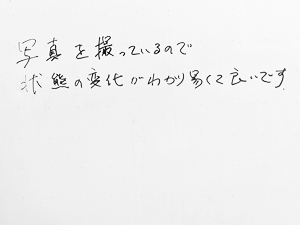 写真を撮っているので
状態の変化がわかり易くて良いです